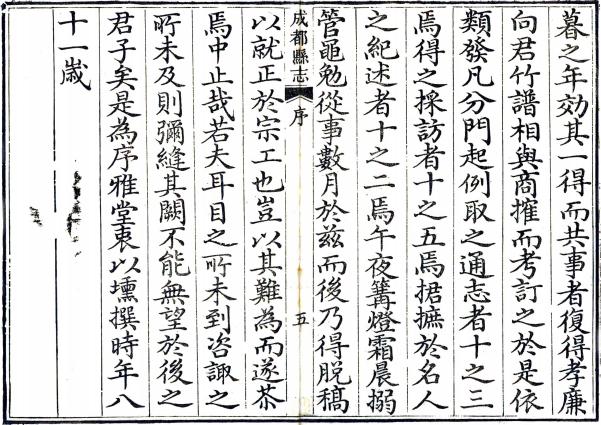 暮之年効其一得而共事者復得孝廉
向君竹譜相與商搉而考訂之於是依
類發凡分門起例取之通志者十之三
焉得之採訪者十之五焉捃摭於名人
之紀述者十之二焉午夜篝燈霜晨搦
管黽勉從事數月於兹而後乃得脱稿
成都縣志
序
五
以就正於宗工也豈以其難為而遂苶
焉中止哉若夫耳目之所未到咨諏之
所未及則彌縫其闕不能無望於後之
君子矣是為序雅堂衷以壎撰時年八
十一歲